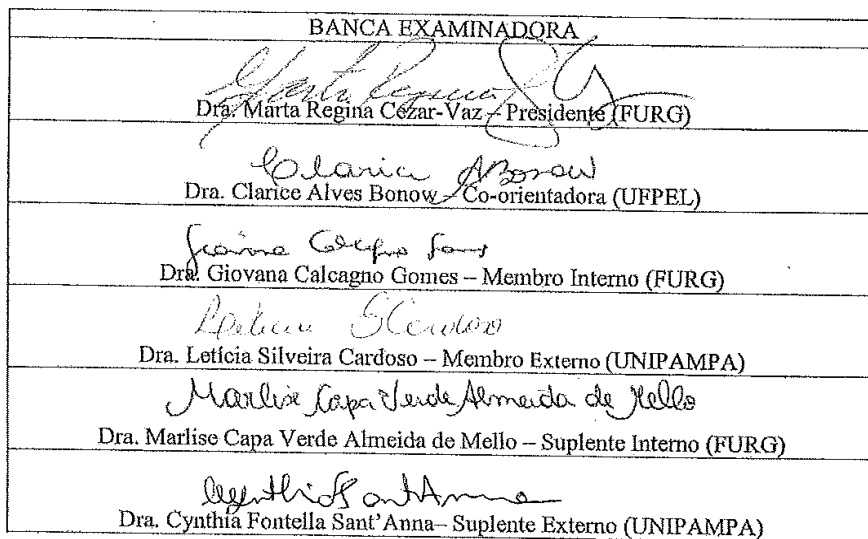 BANCA EXAMINADORA
Dra. Marta Regina Cezar-Vaz – Presidente (FURG)
Clarice ABonow
Dra. Clarice Alves Bonow – Co-orientadora (UFPEL)
Dra. Giovana Calcagno Gomes – Membro Interno (FURG)
Dra. Letícia Silveira Cardoso – Membro Externo (UNIPAMPA)
Marlise Capa Verde Almeida de Mello
Dra. Marlise Capa Verde Almeida de Mello – Suplente Interno (FURG)
Dra. Cynthia Fontella Sant'Anna– Suplente Externo (UNIPAMPA)